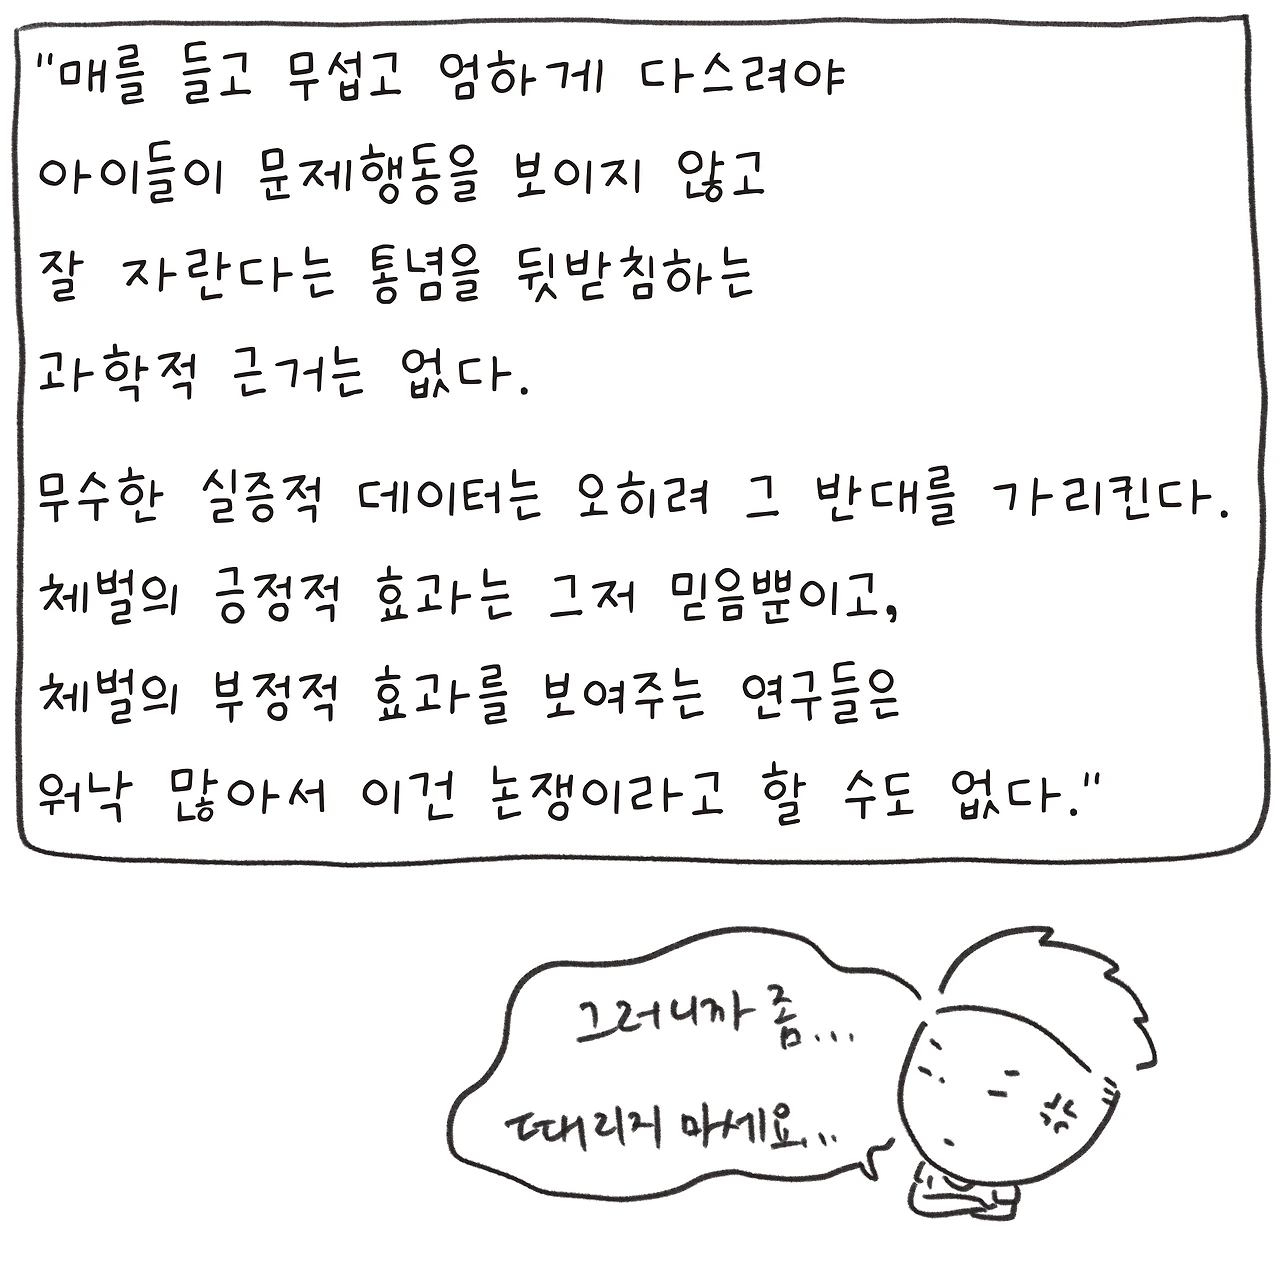 "매를 들고 무섭고 엄하게 다스려야
아이들이 문제행동을 보이지 않고
잘 자란다는 통념을 뒷받침하는
과학적 근거는 없다.
무수한 실증적 데이터는 오히려 그 반대를 가리킨다.
체벌의 긍정적 효과는 그저 믿음뿐이고,
체벌의 부정적 효과를 보여주는 연구들은
워낙 많아서 이건 논쟁이라고 할 수도 없다."
그러니까 좀...
때리지 마세요...